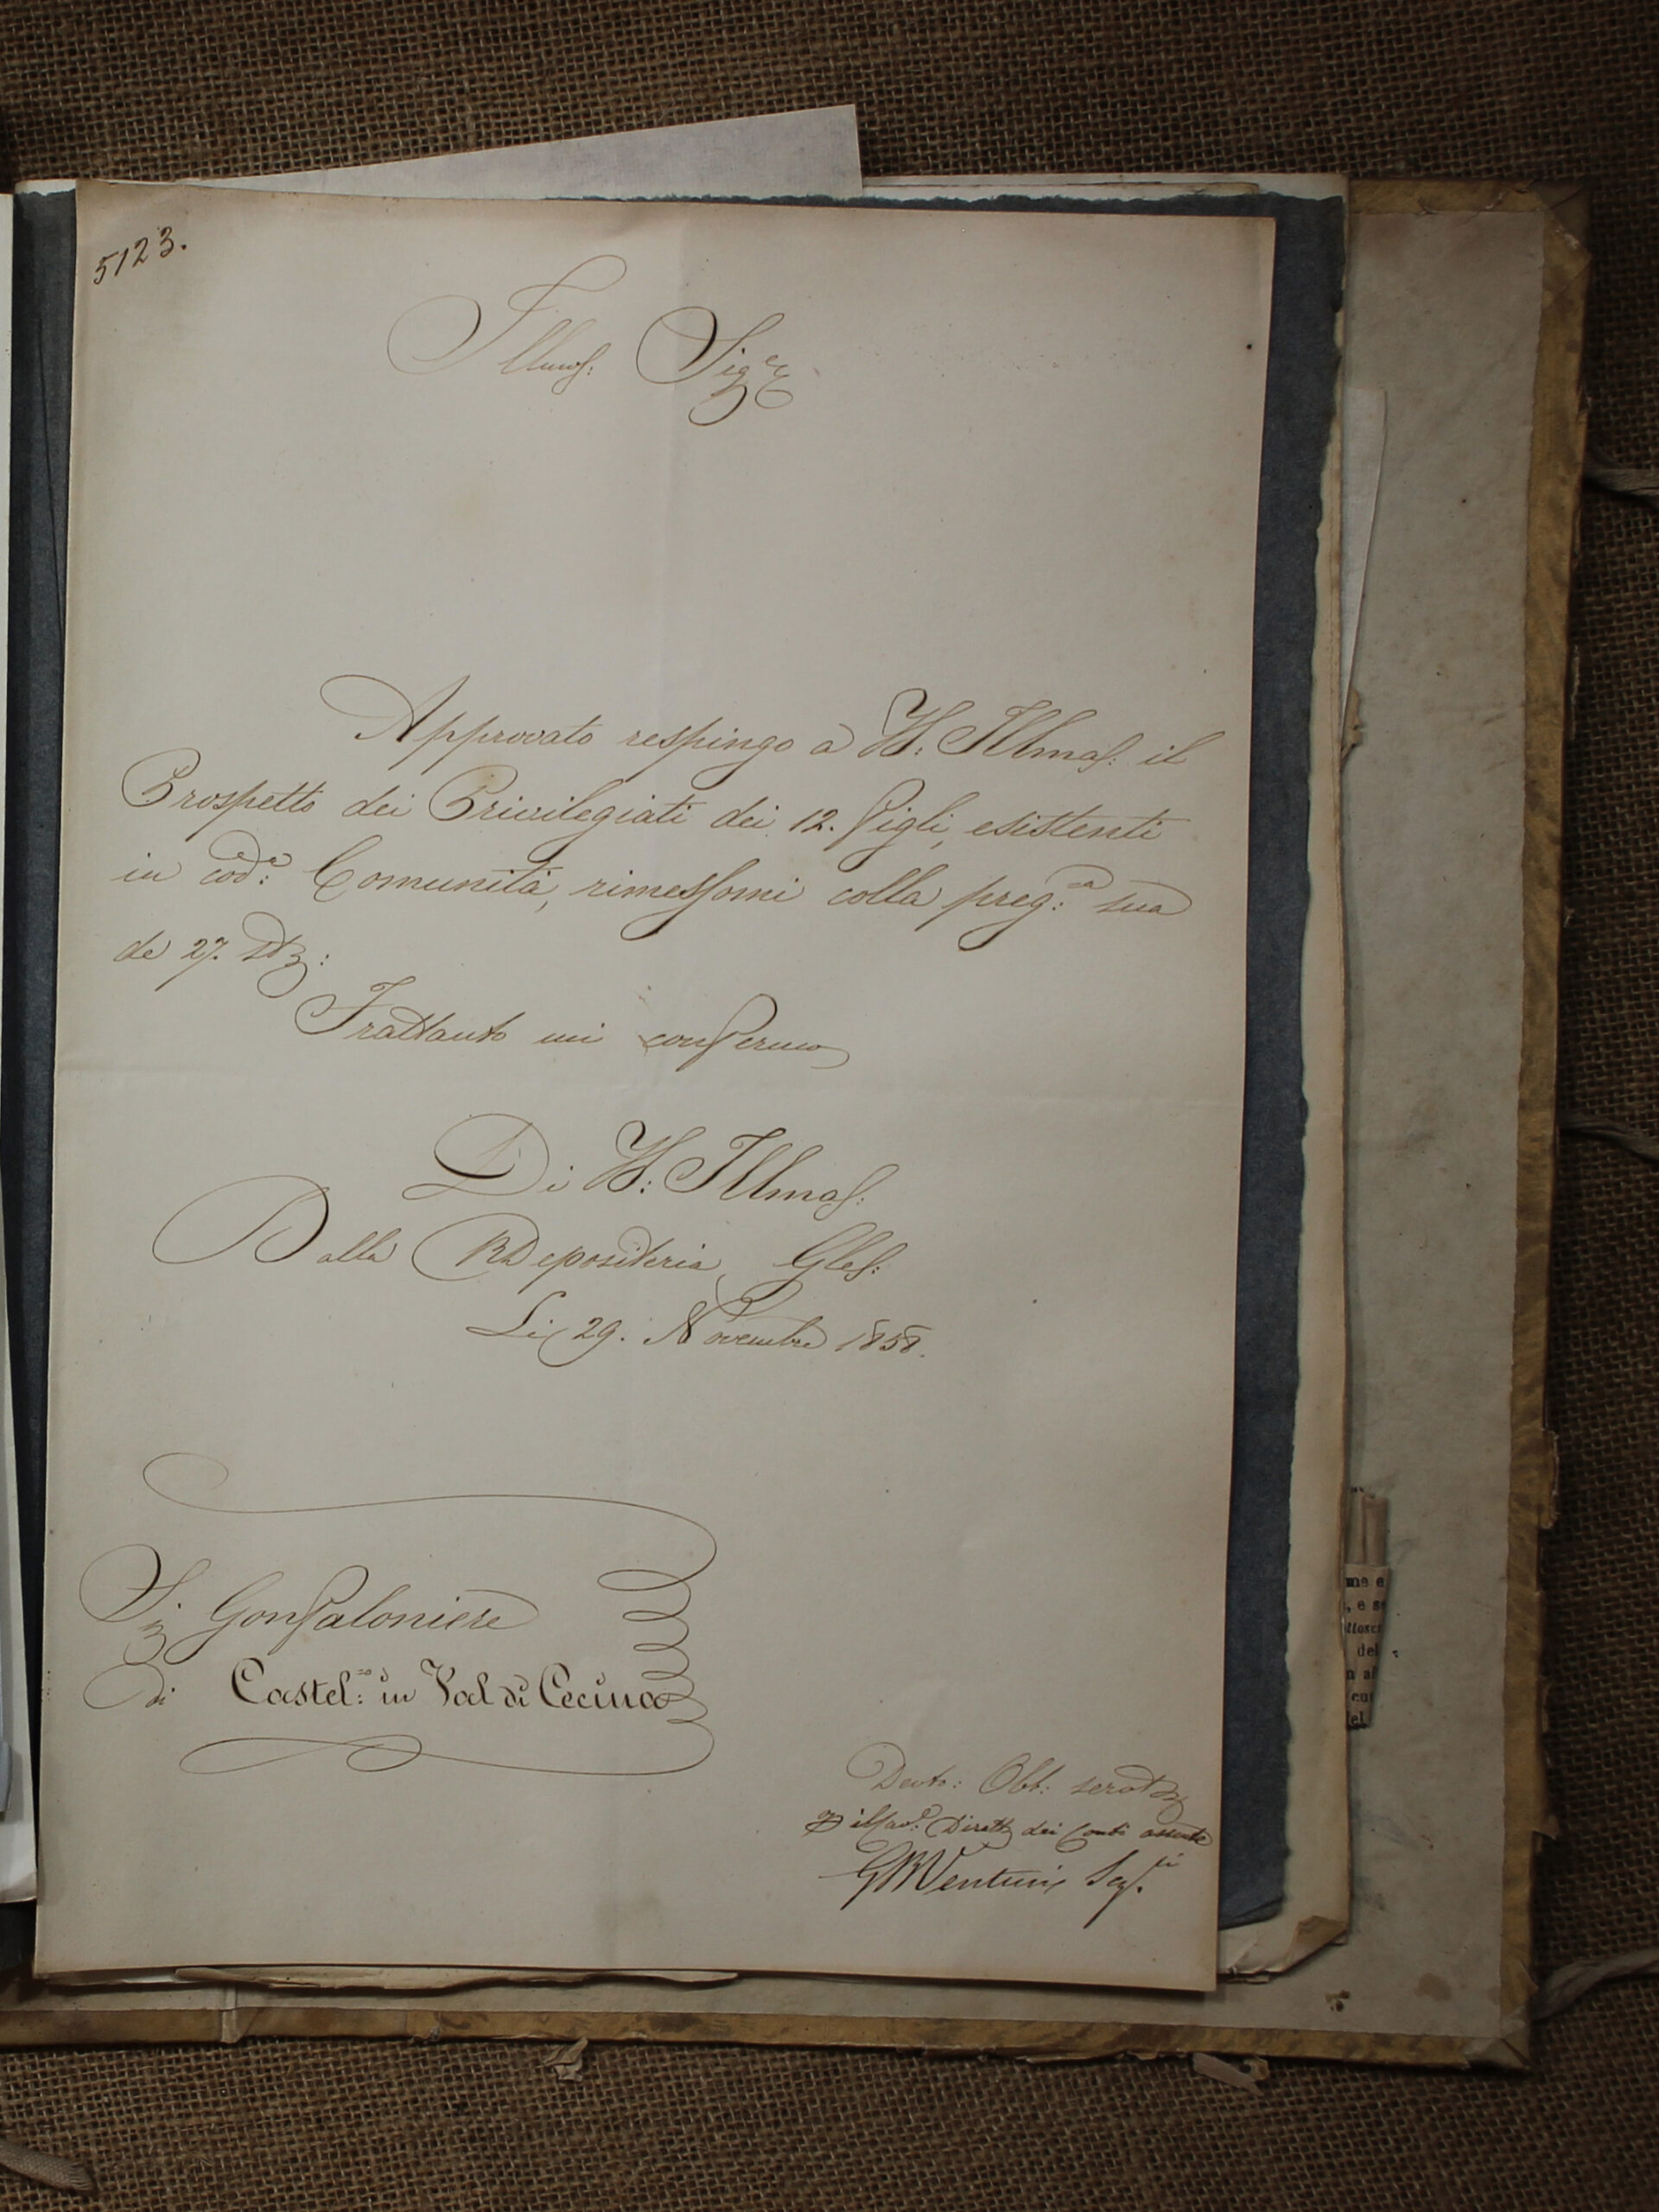 5123.
Illmoſ: Sig.re
Approvato respingo a V.: Illmaſ: il
Prospetto dei Privilegiati dei 12. figli, esistenti
in cod.a: Comunità, rimessomi colla preg:ma sua
de 27. st:
Frattanto mi confermo
Di V.: Illmaſ:
Dalla R Depositeria Gleſ:
Li 29. Novembre 1858.
Sig Gonfaloniere
di Castel:no in Val di Cecina
Devto: Obb: servt
il Cav.e: Dirett dei Conti assente
GB Venturi Seg.
me e
, e s
del
el